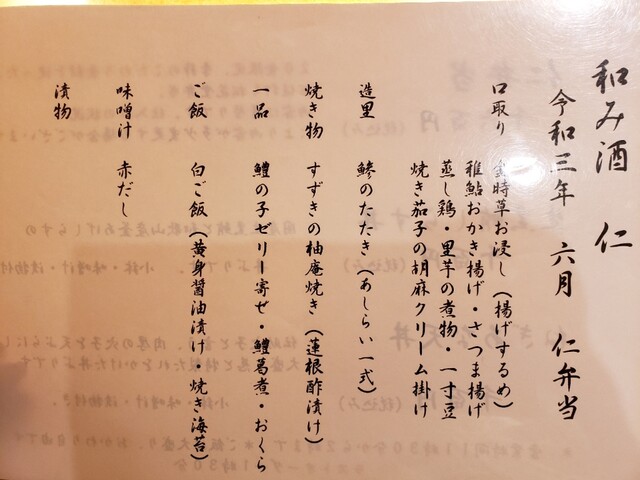 和み酒 仁
令和三年 六月 仁弁当
口取り 金時草お浸し(揚げするめ)
稚鮎おかき揚げ・さつま揚げ
蒸し鶏・里芋の煮物・一寸豆
焼き茄子の胡麻クリーム掛け
造里 鯵のたたき(あしらい一式)
焼き物 すずきの柚庵焼き(蓮根酢漬け)
一品 鱧の子ゼリー寄せ・鱧葛煮・おくら
ご飯 白ご飯(黄身醤油漬け・焼き海苔)
味噌汁 赤だし
漬物